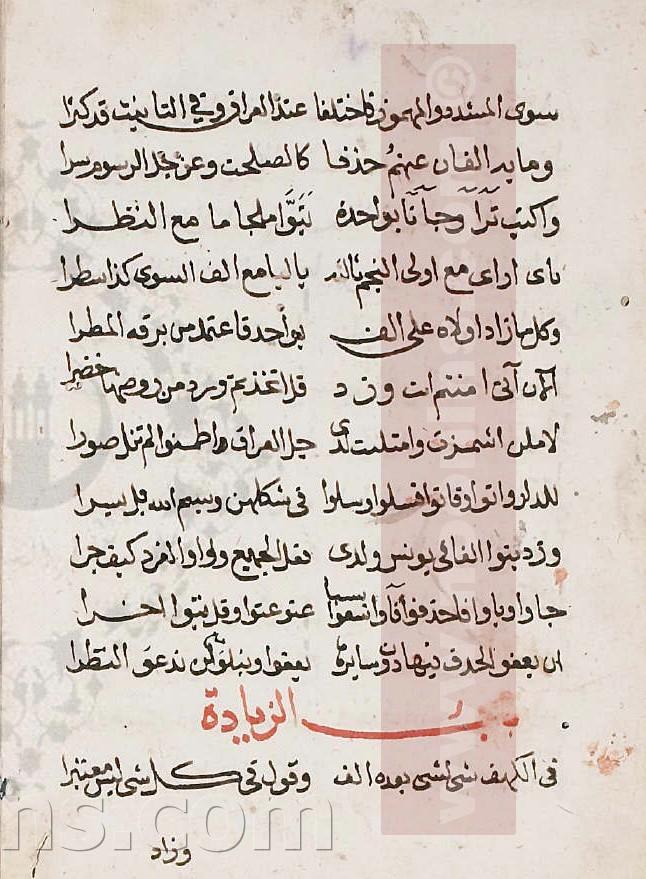 سوى المشدد والمهموز فاختلفا عند العراق وفي التانيث قد كثرا
وما به الفان عنهم حذفا كالصلحت وعن جل الرسوم سرا
واكتب ترآ وجآنا بواحدة تبَوَّا ملجا ما مع النظرا
ناى اراى مع اولى النجم ثالثه باليا مع الف السوى كذا سطرا
وكل ما زاد اولاه على الف بواحد فاعتمد من برقه المطرا
آلان آتى امنتم ات وزد قل اتخذتم ورد من روضها خضرا
لاملن اشمزت وامتلت لدى جل العراق واطمنوا لم تنل صورا
للدار واتوا وفاتوا فسلوا وسلوا في شكلهن وبسم الله نل يسرا
وزد بنوا الفا في يونس ولدى فعل الجميع وواو المفرد كيف جرا
جاو وباو فاحذفوا فآو سعو بسبا عتو عتوا وقل تبوا اخرا
ان يعفو الحذف فيها دون سايره يعفوا ويبلو لن ندعو النظرا
باب الزيادة
في الكهف شين لشى بعده الف وقول في كل شى ليس معتبرا
وزاد
ns.com